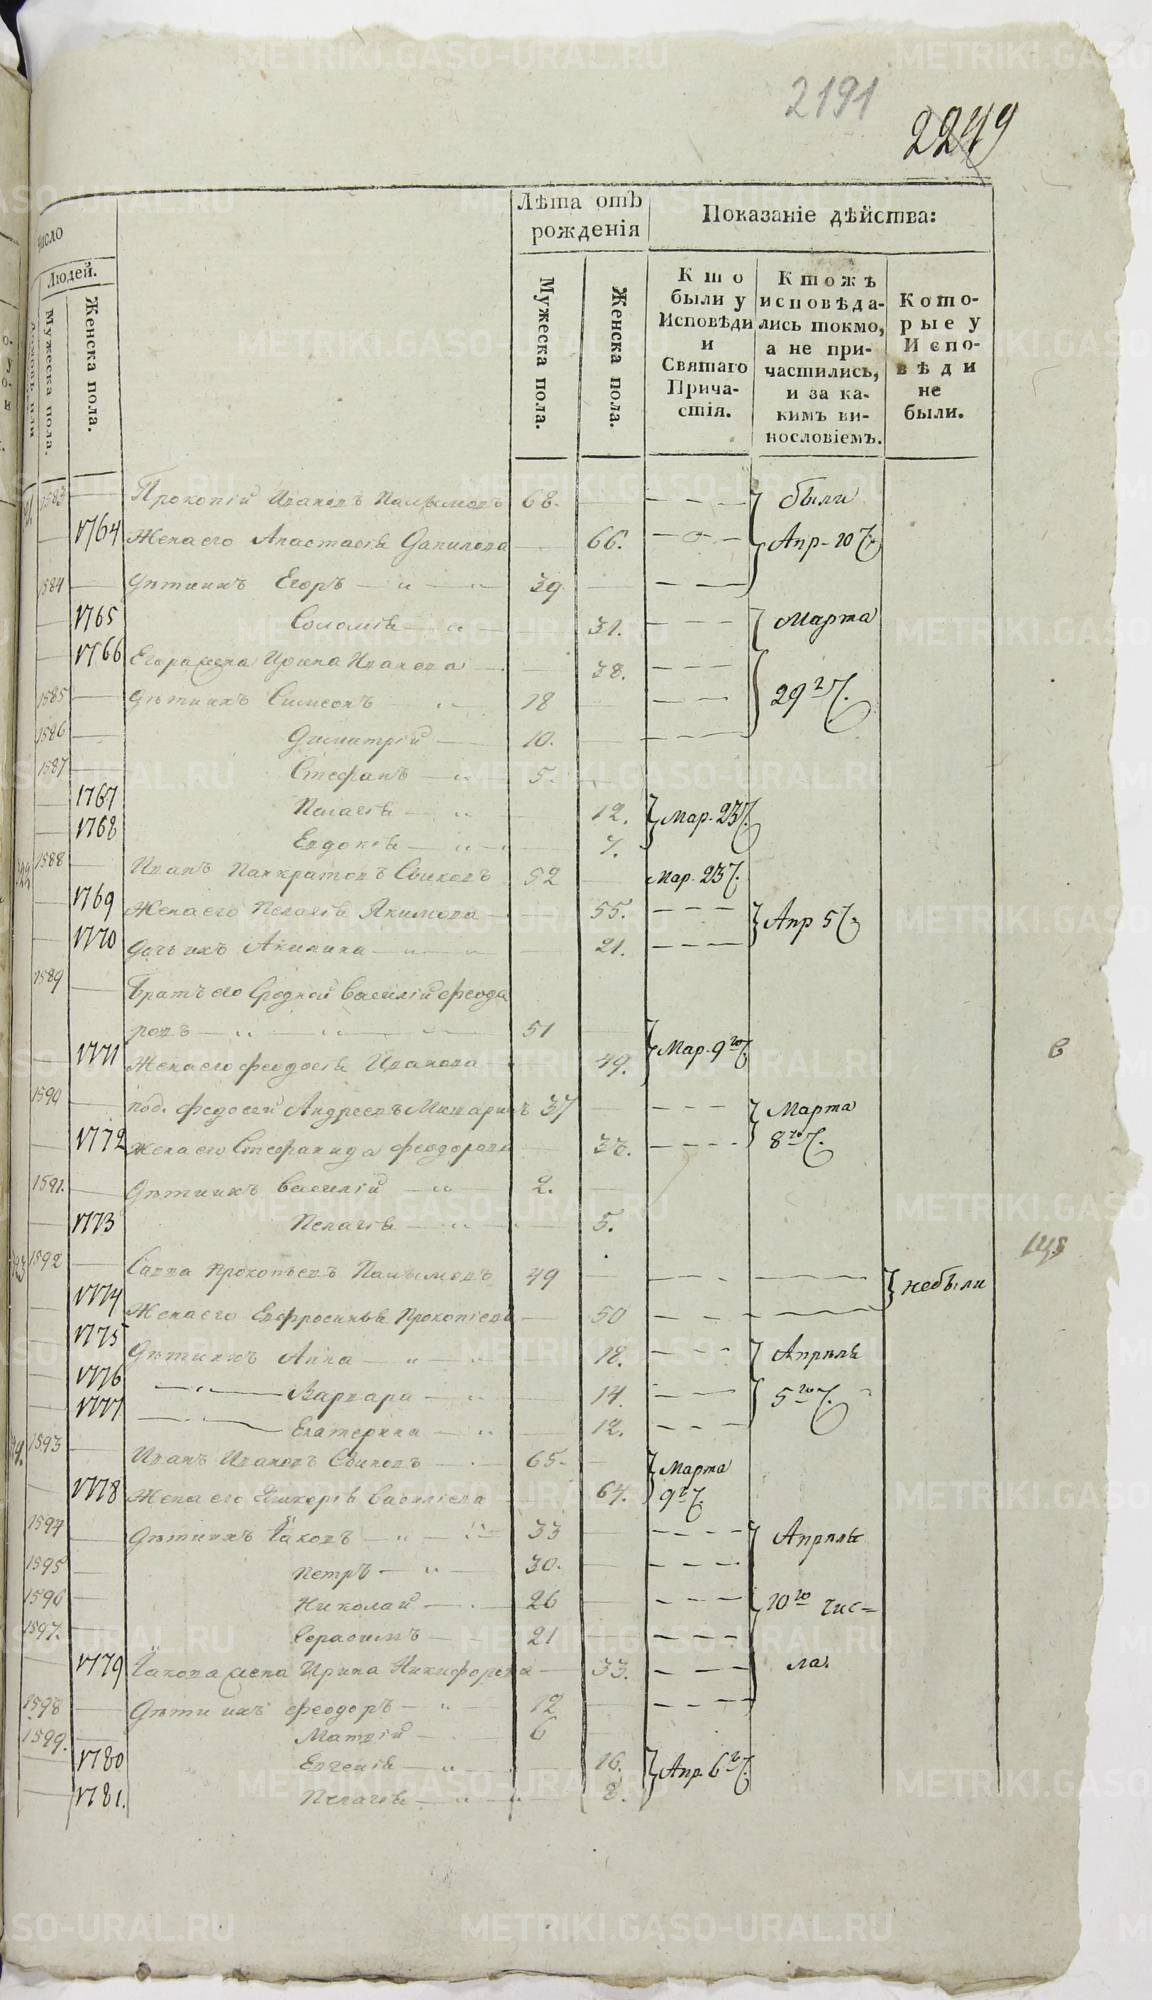 2191
2249
Число
Людей.
Мужеска пола.
Женска пола.
Лѣта отъ рожденія
Мужеска пола.
Женска пола.
Показаніе дѣйства:
Кто были у Исповѣди и Святаго Причастія.
Ктожъ исповѣдались токмо, а не причастились, и за какимъ винословіемъ.
Которые у Исповѣди не были.
1583 Прокопій Ивановъ 68. были
1764 Жена его Анастасія Данилова 66. Апр. 10
1584 Дѣти ихъ Егоръ 39
1765 Соломія 31. Марта
1766 Егора жена Ирина Иванова 38.
1585 Дѣти ихъ Симеонъ 18 29
1586 Димитрій 10.
1587 Стефанъ 5.
1767 Пелагія 12. Мар. 23
1768 Евдокія 7.
1588 Иванъ Панкратовъ 52 Мар. 23
1769 Жена его Пелагія Якимова 55.
1770 Дочь ихъ Акилина 21. Апр 5
1589 Братъ его Сродной Василій Феодо
ровъ 51
1771 Жена его Феодосія Иванова 49. Мар. 9го
1590 под. Федосей Андреевъ 37 Марта
1772 Жена его Стефанида Феодорова 8го
1591. Дѣти ихъ Василій 2.
1773 Пелагія 5.
1592 Савва Прокопьевъ 49 небыли
1774 Жена его Евфросинья Прокопіева 50
1775 Дѣти ихъ Анна 18. Апрѣля
1776 Варвара 14. 5го
1777 Екатерина 12.
1593 Иванъ Ивановъ 65. Марта
1778 Жена его Васильева 64. 9
1594 Дѣти ихъ Іаковъ 33 Апрѣля
1595 Петръ 30.
1596 Николай 26 10го чис=
1597. Герасимъ 21
1779 Іакова жена Ирина Никифорова 33. ла.
1598 Дѣти ихъ Феодоръ 12
1599. 6
1780 Евгенія 16. Апр. 6
1781. Пелагія 3.